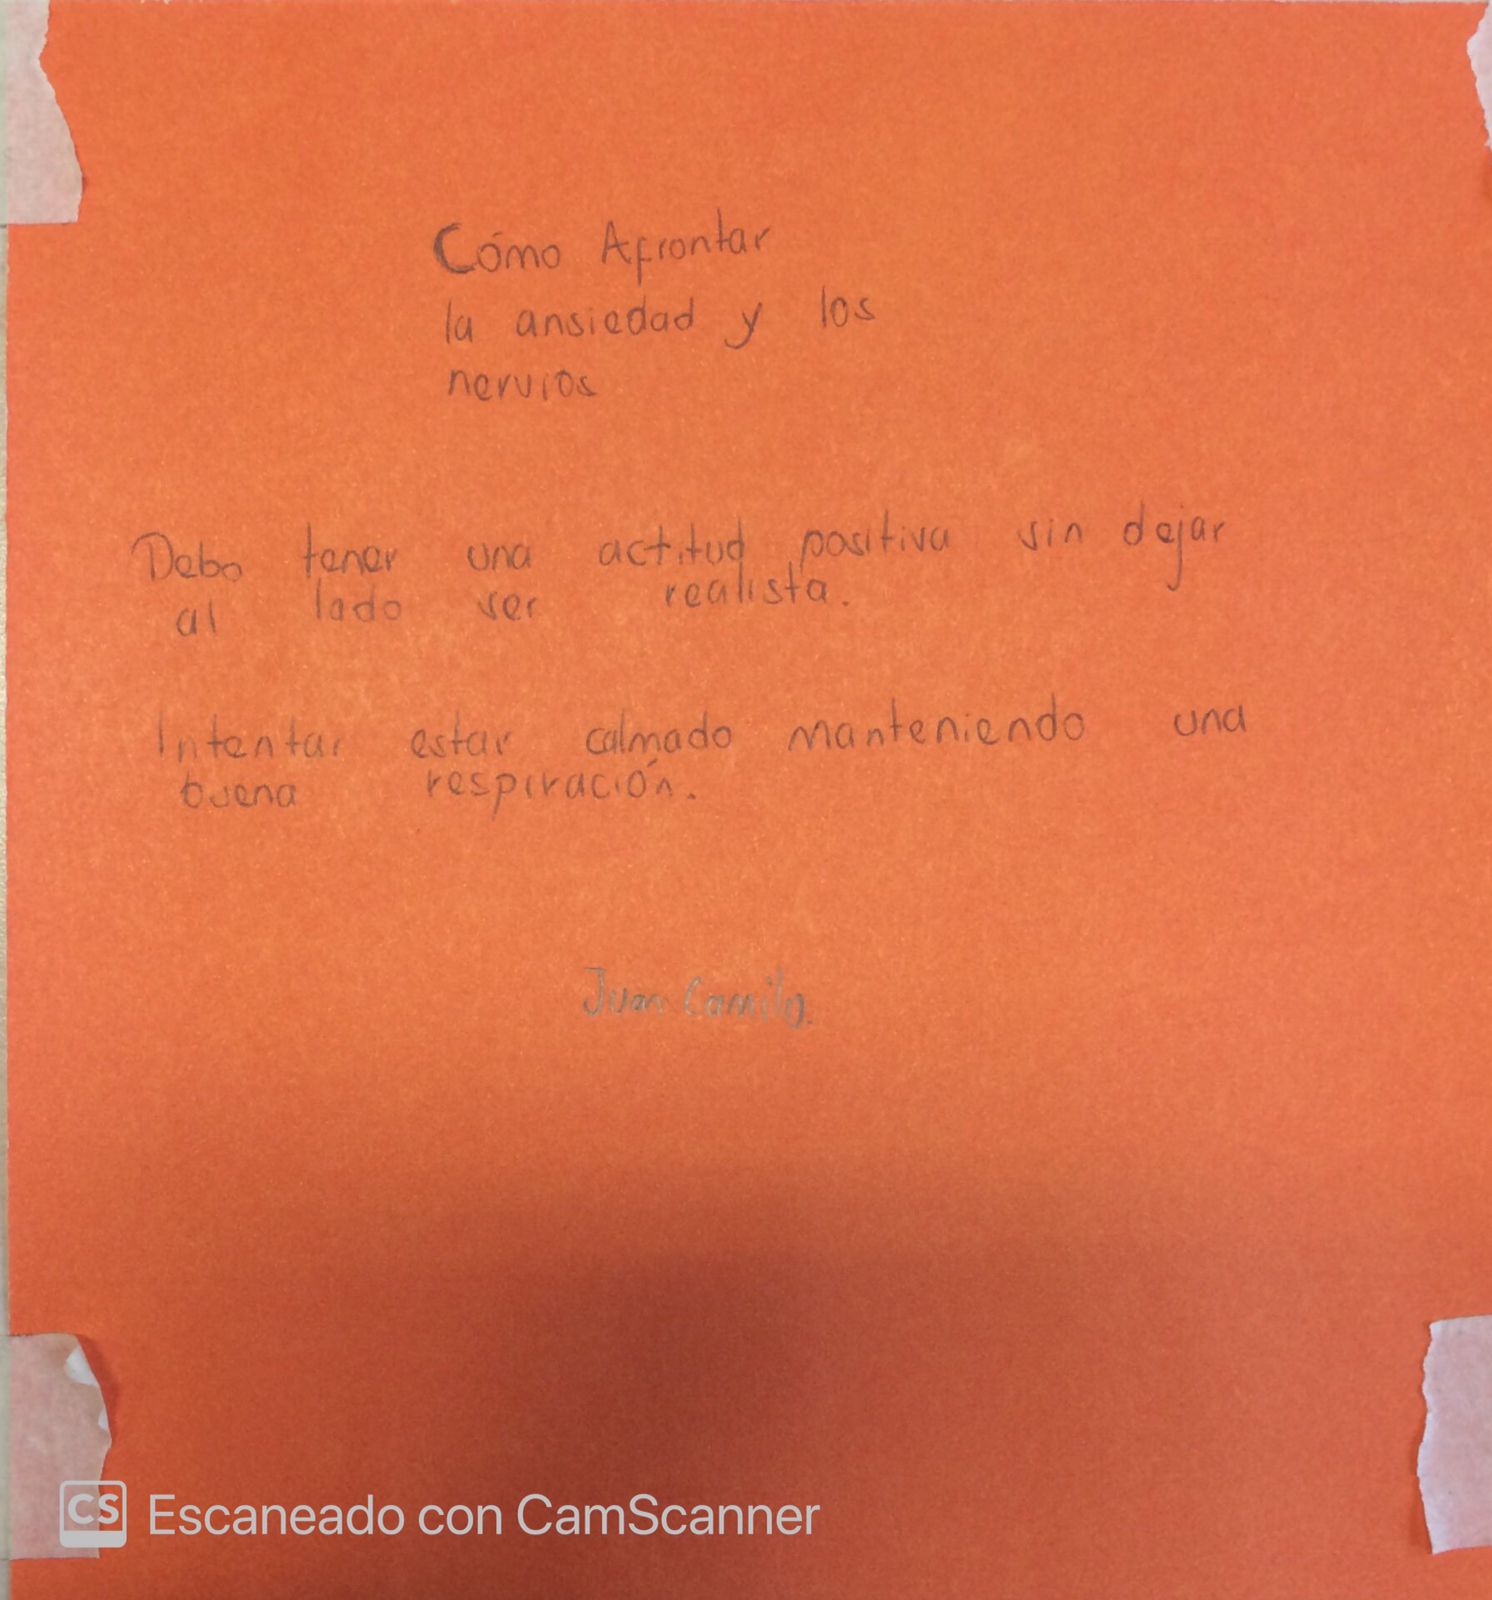 Cómo Afrontar
la ansiedad y los
nervios
Debo tener una actitud positiva sin dejar
al lado ser realista.
Intentar estar calmado manteniendo una
buena respiración.
Juan Camilo.
CS Escaneado con CamScanner